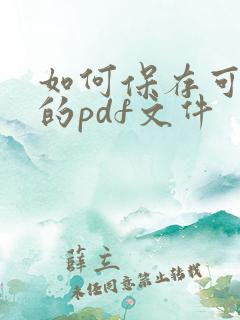 如何保存可
的pdf文件
薛立
未经同意禁止转载